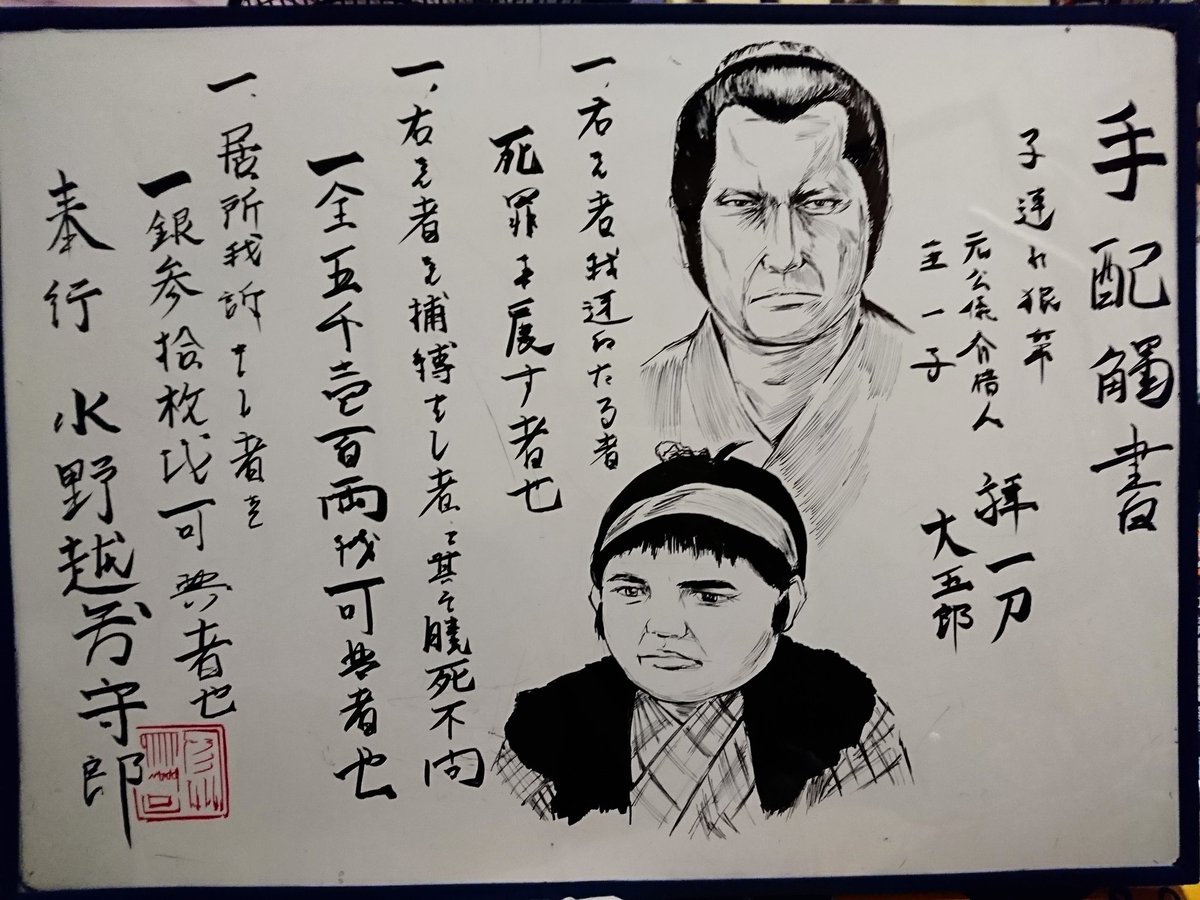 手配觸書
子連れ狼
元公儀介錯人 拝一刀
一子 大五郎
一、右之者我連れたる者
死罪す者也
一、右之者を捕縛せし者、其之死不問
一金五千壱百両可與者也
一、居所我訴せし者
一銀参拾枚可與者也
奉行 水野越前守郎